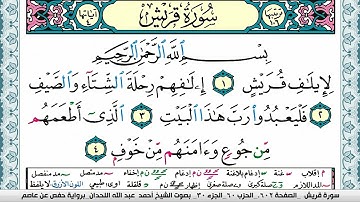 سُورَةُ قُرَيْشٍ
بِسْمِ ٱللَّهِ ٱلرَّحْمَٰنِ ٱلرَّحِيمِ
لِإِيلَٰفِ قُرَيْشٍ ١ إِۦلَٰفِهِمْ رِحْلَةَ ٱلشِّتَآءِ وَٱلصَّيْفِ
٢ فَلْيَعْبُدُوا۟ رَبَّ هَٰذَا ٱلْبَيْتِ ٣ ٱلَّذِىٓ أَطْعَمَهُم
مِّن جُوعٍ وَءَامَنَهُم مِّنْ خَوْفٍۭ ٤
سورة قريش - الصفحة ٦٠٢ - الجزء ٣٠ - بصوت الشيخ أحمد عبد الله اللحدان برواية حفص عن عاصم